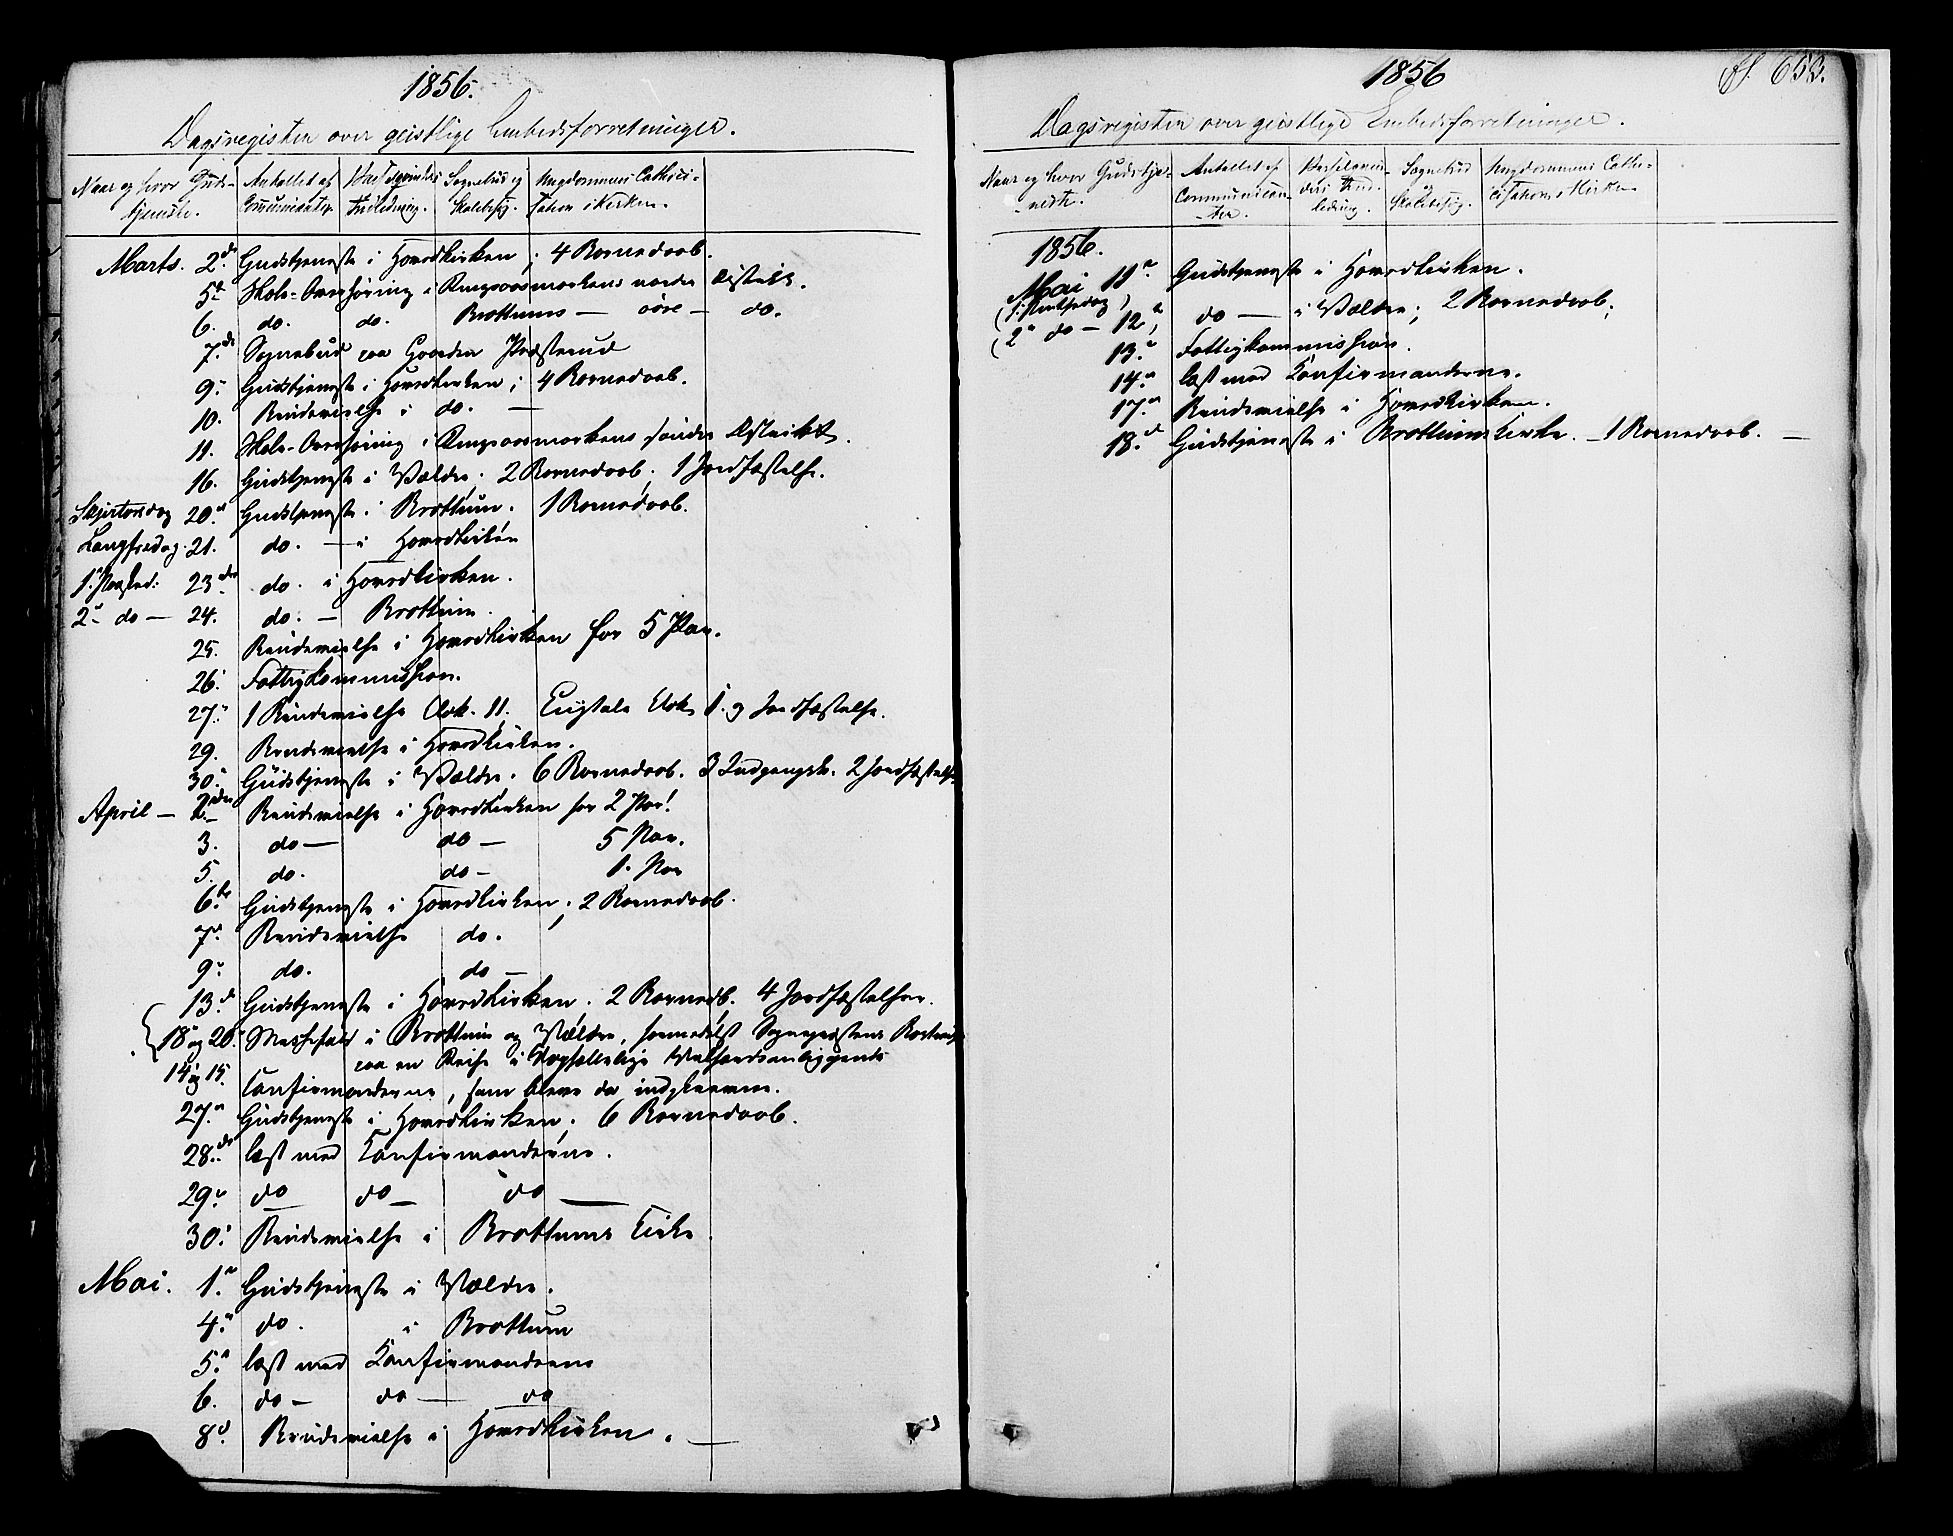 1856.
Dagsregister over geistlige Embedsforretninger.
Naar og hvor Guds-
tjeneste.
Antallet af
Communicanter
Barselqvinders
Indledning.
Sognebud og
Skolebesøg.
Ungdommens Catheci-
sation i Kirken.
Marts. 2de Gudstjeneste i Hovedkirken; 4 Barnedaab.
5te Skole-Overhøring i Ringsagermarkens nordre District.
6. do. do. Brottums — øvre — do.
7de Sognebud paa Gaarden Præsterud
9. Gudstjeneste i Hovedkirken; 4 Barnedaab.
10. Brudevielse i do. —
11. Skole-Overhøring i søndre District.
16. Gudstjeneste i Vældre; 2 Barnedaab; 1 Jordfæstelse.
Skjertorsdag 20. Gudstjeneste i Brottum. 1 Barnedaab.
Langfredag. 21. do. — i Hovedkirken
1. Paasked: 23de do. i Hovedkirken.
2. do — 24. do. — Brottum.
25. Brudevielse i Hovedkirken for 5 Par.
26. Fattigkommission.
27. 1 Brudevielse Klok. 11. Ligtale Klok 1. og Jordfæstelse.
29. Brudevielse i Hovedkirken.
30. Gudstjeneste i Vældre. 6 Barnedaab. 3 Indgangsk. 2 Jordfæstelse
April — 2den Brudevielse i Hovedkirken for 2 Par.
3. do — do — 5 Par.
5. do. do — 1. Par
6te Gudstjeneste i Hovedkirken; 2 Barnedaab.
7. Brudevielse do.
9. do. do —
13de Gudstjeneste i Hovedkirken. 2 Barnedb. 4 Jordfæstelser.
18 og 20. Messefald i Brottum og Vældre, formedelst Sognepræstens
paa en Reise i Velfærdsanliggende
14 og 15. Confirmanderne, som bleve da indskrevne.
27. Gudstjeneste i Hovedkirken. 6 Barnedaab.
28de læst med Konfirmanderne.
29. do do — do —
30. Brudevielse i Brottums Kirke.
Mai. 1. Gudstjeneste i Vældre.
4. do. i Brottum
5. læst med Konfirmanderne
6. do — do — do
8. Brudevielse i Hovedkirken. —
1856
Dagsregister over geistlige Embedsforretninger.
Naar og hvor Gudstje-
neste.
Antallet af
Communican-
ter.
Barselqvin-
ders Ind-
ledning.
Sognebud
og
Skolebesøg.
Ungdommens Cathe-
cisation i Kirken
1856.
Mai 11. Gudstjeneste i Hovedkirken.
(1. Pintsedag)
(2. do — 12. do — i Vældre; 2 Barnedaab.
13. Fattigkommission.
14. læst med Konfirmanderne.
17. Brudevielse i Hovedkirken.
18. Gudstjeneste i Brottums Kirke. — 1 Barnedaab. —